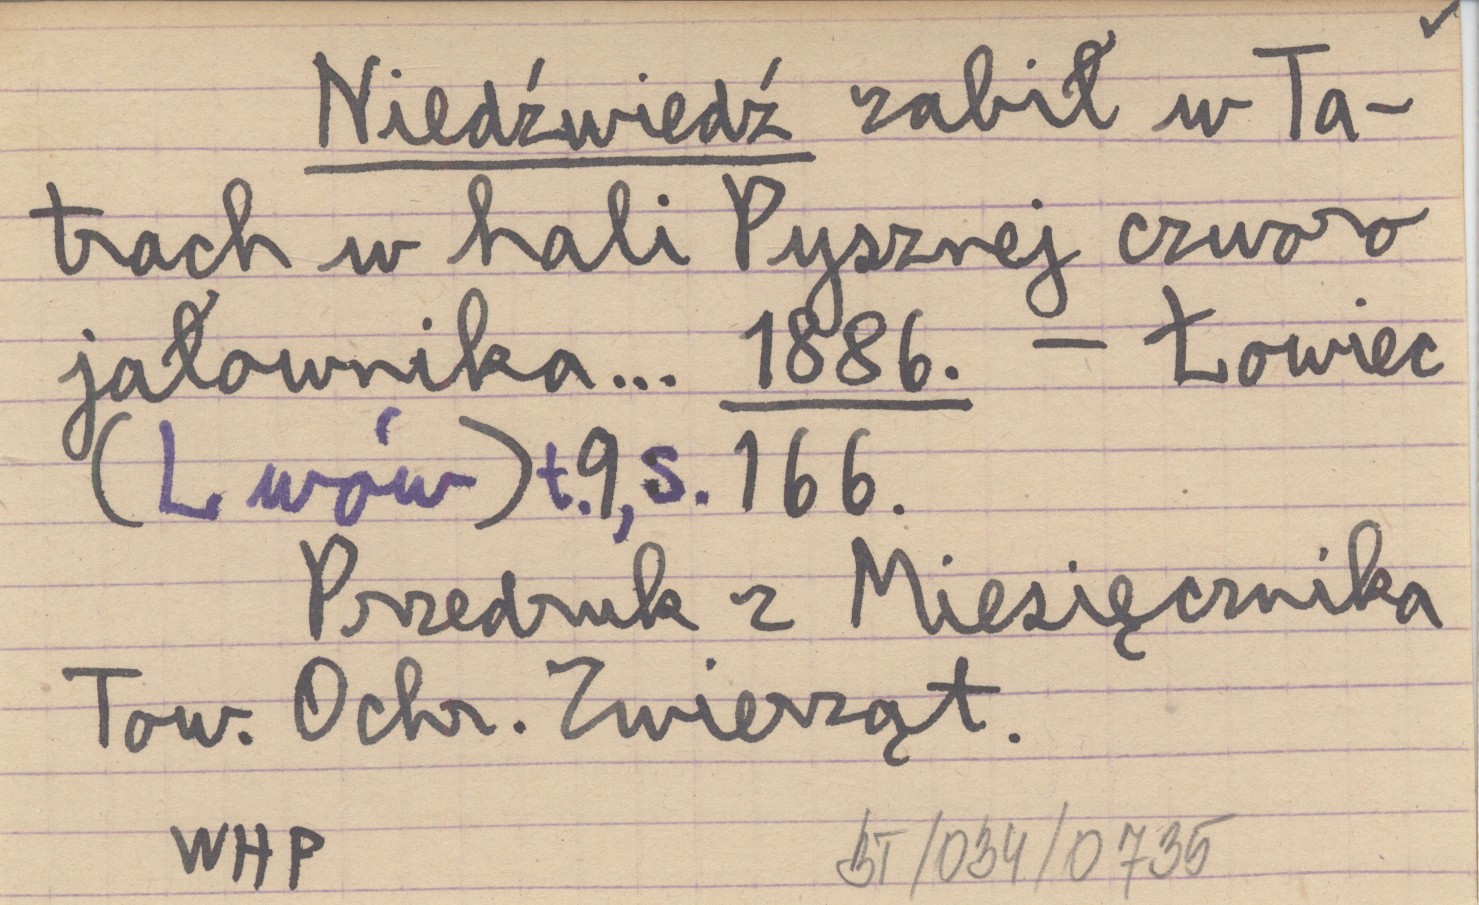 Niedźwiedź zabił w Ta-
trach w hali Pysznej czworo
jałownika... 1886. – Łowiec
(Lwów) t. 9, s. 166.
Przedruk z Miesięcznika
Tow. Ochr. Zwierząt.
WHP
BT/034/0735